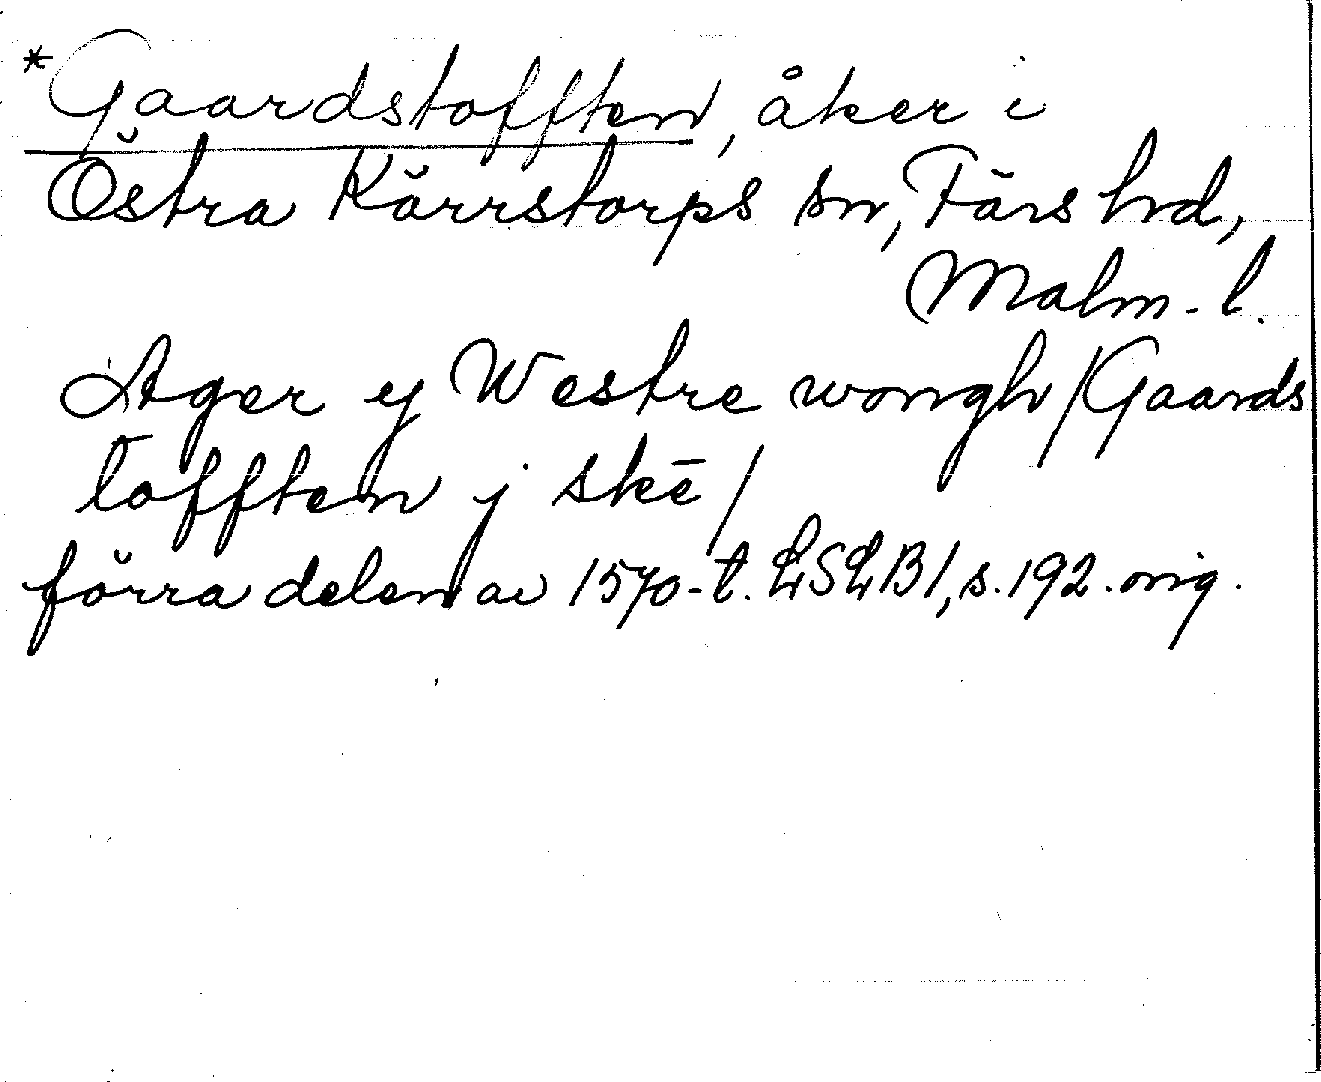 *Gaardstofften, åker i
Östra Kärrstorps sn, Färs hrd,
Malm. l.
Ager ej Westre wongh/Gaards
tofften j skē/
förra delen av 1570-t. LSLB1, s. 192. orig.